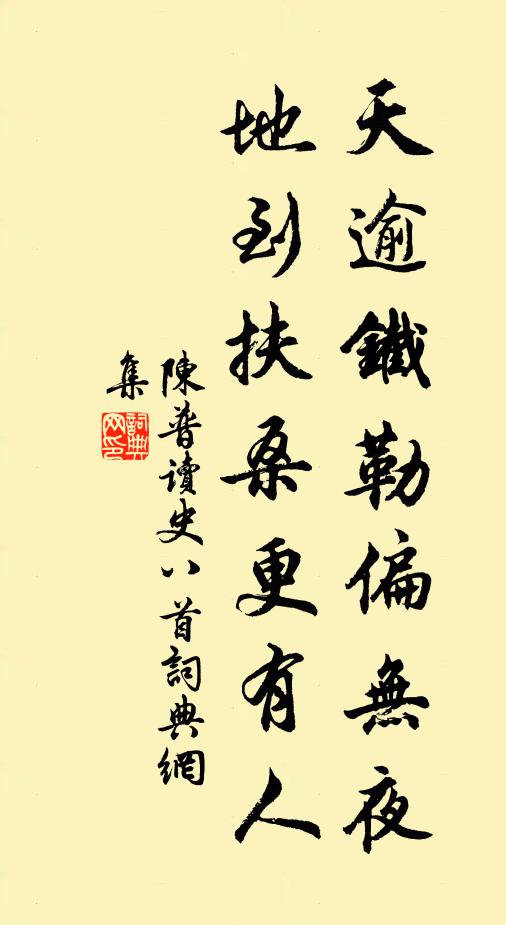 天逾鐵勒偏無夜
地到扶桑更有人
陳普讀史八首詞典網
集
詞典
网印